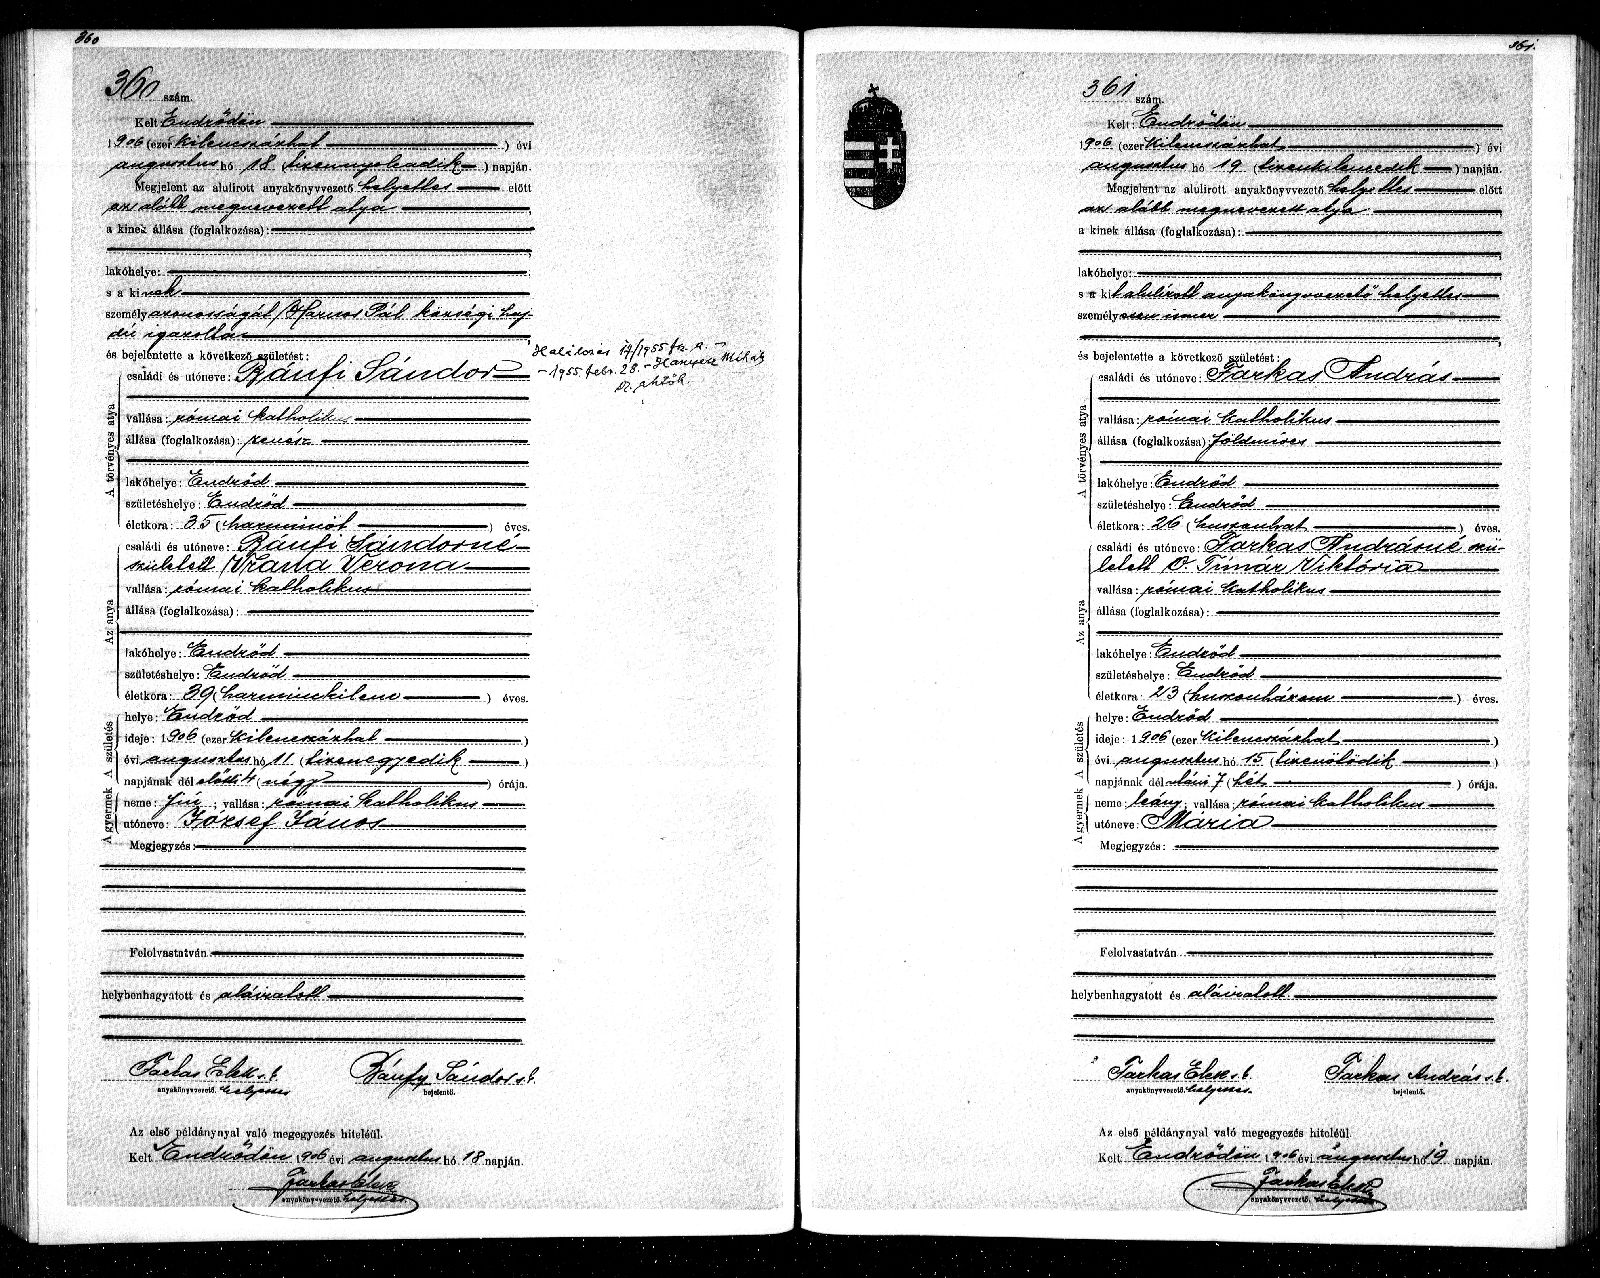 360
360 szám.
Kelt Endrődön
1906 (ezer kilencszázhat) évi
augusztus hó 18 (tizennyolcadik) napján.
Megjelent az alulirott anyakönyvvezető helyettes előtt
az alább megnevezett atya
a kinek állása (foglalkozása):
lakóhelye:
s a kinek
személyazonosságát Harmos Pál községi haj-
dú igazolta
és bejelentette a következő születést:
A törvényes atya
családi és utóneve: Bánfi Sándor
vallása: római katholikus
állása (foglalkozása): zenész
lakóhelye: Endrőd
születéshelye: Endrőd
életkora: 35 (harminöt) éves.
Az anya
családi és utóneve: Bánfi Sándorné
született Vrana Verona
vallása: római katholikus
állása (foglalkozása):
lakóhelye: Endrőd
születéshelye: Endrőd
életkora: 39 (harminckilenc) éves.
A gyermek A születés
helye: Endrőd
ideje: 1906 (ezer kilencszázhat)
évi augusztus hó 11 (tizenegyedik)
napjának dél előtti 4 (négy) órája.
neme: fiú; vallása: római katholikus
utóneve: József János
Megjegyzés:
Felolvastatván
helybenhagyatott és aláiratott
Farkas Elek s.k. Bánfy Sándor s.k.
anyakönyvvezető helyettes bejelentő.
Az első példánynyal való megegyezés hiteléül.
Kelt Endrődön 1906 évi augusztus hó 18 napján.
Farkas Elek
anyakönyvvezető helyettes
Halálozás 17/1955 fsz. a.
1955. febr. 28. - Hanyecz Mihály
361.
361 szám.
Kelt: Endrődön
1906 (ezer kilencszázhat) évi
augusztus hó 19 (tizenkilencedik) napján.
Megjelent az alulirott anyakönyvvezető helyettes előtt
az alább megnevezett atya
a kinek állása (foglalkozása):
lakóhelye:
s a kit alulírott anyakönyvvezető helyettes
személyesen ismer
és bejelentette a következő születést:
A törvényes atya
családi és utóneve: Farkas András
vallása: római katholikus
állása (foglalkozása): földmíves
lakóhelye: Endrőd
születéshelye: Endrőd
életkora: 26 (huszonhat) éves.
Az anya
családi és utóneve: Farkas Andrásné szü-
letett O. Tímár Viktória
vallása: római katholikus
állása (foglalkozása):
lakóhelye: Endrőd
születéshelye: Endrőd
életkora: 23 (huszonhárom) éves.
A gyermek A születés
helye: Endrőd
ideje: 1906 (ezer kilencszázhat)
évi augusztus hó 15 (tizenötödik)
napjának dél után 7 (hét) órája.
neme leány; vallása: római katholikus
utóneve: Mária
Megjegyzés:
Felolvastatván
helybenhagyatott és aláiratott
Farkas Elek s.k. Farkas András s.k.
anyakönyvvezető helyettes. bejelentő.
Az első példánynyal való megegyezés hiteléül.
Kelt Endrődön 1906 évi augusztus hó 19 napján.
Farkas Elek
anyakönyvvezető, helyettes